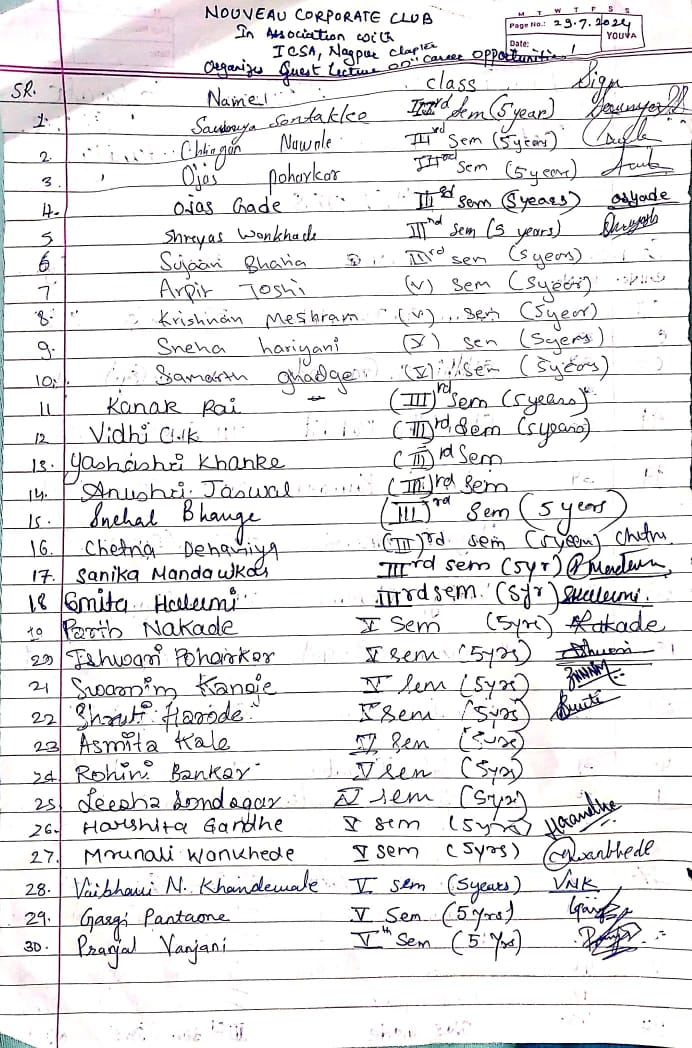 NOUVEAU CORPORATE CLUB
In Association with
ICSA, Nagpur Chapter
Organizes Guest Lecture on "career opportunities"
M T W T F S S
Page No.: 29.7.2024
Date: YOUVA
SR. Name class Sign
1. Sontakke IIIrd Sem (5 year)
2. Chhagan Nawale IIIrd Sem (5 years)
3. Ojas Poharkar IIIrd Sem (5 years)
4. Ojas Gade IIIrd Sem (5 years) OSGade
5 Shreyas Wankhade IIInd Sem (5 years)
6 Bhatia IIIrd sem (5 years)
7 Arpit Joshi (V) Sem (5 year)
8. Krishnan Meshram (V) Sem (5 year)
9. Sneha hariyani (V) Sem (5 years)
10. Samarth ghadge (V) Sem (5 years)
11 Kanak Rai (III)rd Sem (5 years)
12 Vidhi (III)rd Sem (5 years)
13. Yashashri Khanke (III)rd Sem
14. Anushri Jaswal (III)rd Sem
15. Snehal Bhange (III)rd Sem (5 years)
16. Chetna Dehariya (III)rd sem (5 years) Chetna
17. Sanika Mandawkar IIIrd sem (5 yr)
18 Smita Halami IIIrd sem. (5 yr) SHalami.
19 Parth Nakade V Sem (5 yrs) Nakade
20 Ishwari Poharkar V sem (5 yrs) Ishwari
21 Swarnim Kange V Sem (5 yrs)
22 Shruti Harode V Sem (5 yrs) Shruti
23 Asmita Kale V Sem (5 yrs)
24 Rohini Bankar V sem (5 yrs)
25 Leesha Sondagar V sem (5 yrs)
26. Harshita Gandhe V sem (5 yrs)
27. Mrunali Wankhede V sem (5 yrs) Wankhede
28. Vaibhavi N. Khandewale V sem (5 years) VNK
29. Gargi Pantaone V Sem (5 Yrs)
30. Pranjal Vanjani Vth Sem (5 Yrs)